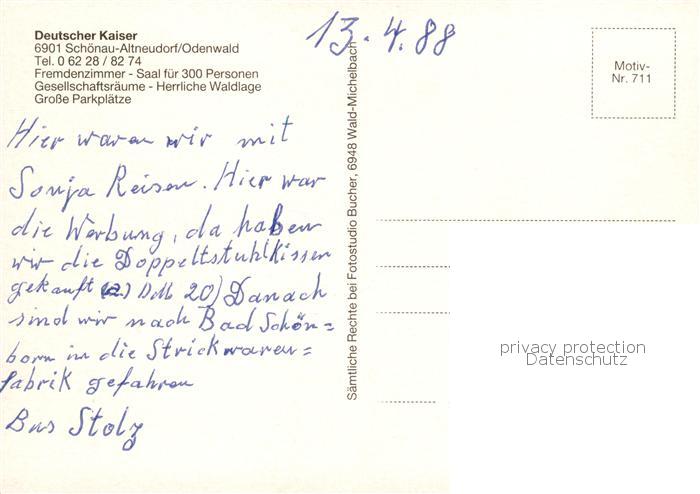 Deutscher Kaiser
6901 Schönau-Altneudorf/Odenwald
Tel. 0 62 28 / 82 74
Fremdenzimmer - Saal für 300 Personen
Gesellschaftsräume - Herrliche Waldlage
Große Parkplätze
13.4.88
Motiv-
Nr. 711
Hier waren wir mit
Sonja Reisen. Hier war
die Werbung, da haben
wir die Doppeltstuhlkissen
gekauft (2) DM 20) Danach
sind wir nach Bad Schön=
born in die Strickwaren=
fabrik gefahren
Bus Stolz
Sämtliche Rechte bei Fotostudio Bucher, 6948 Wald-Michelbach
privacy protection
Datenschutz